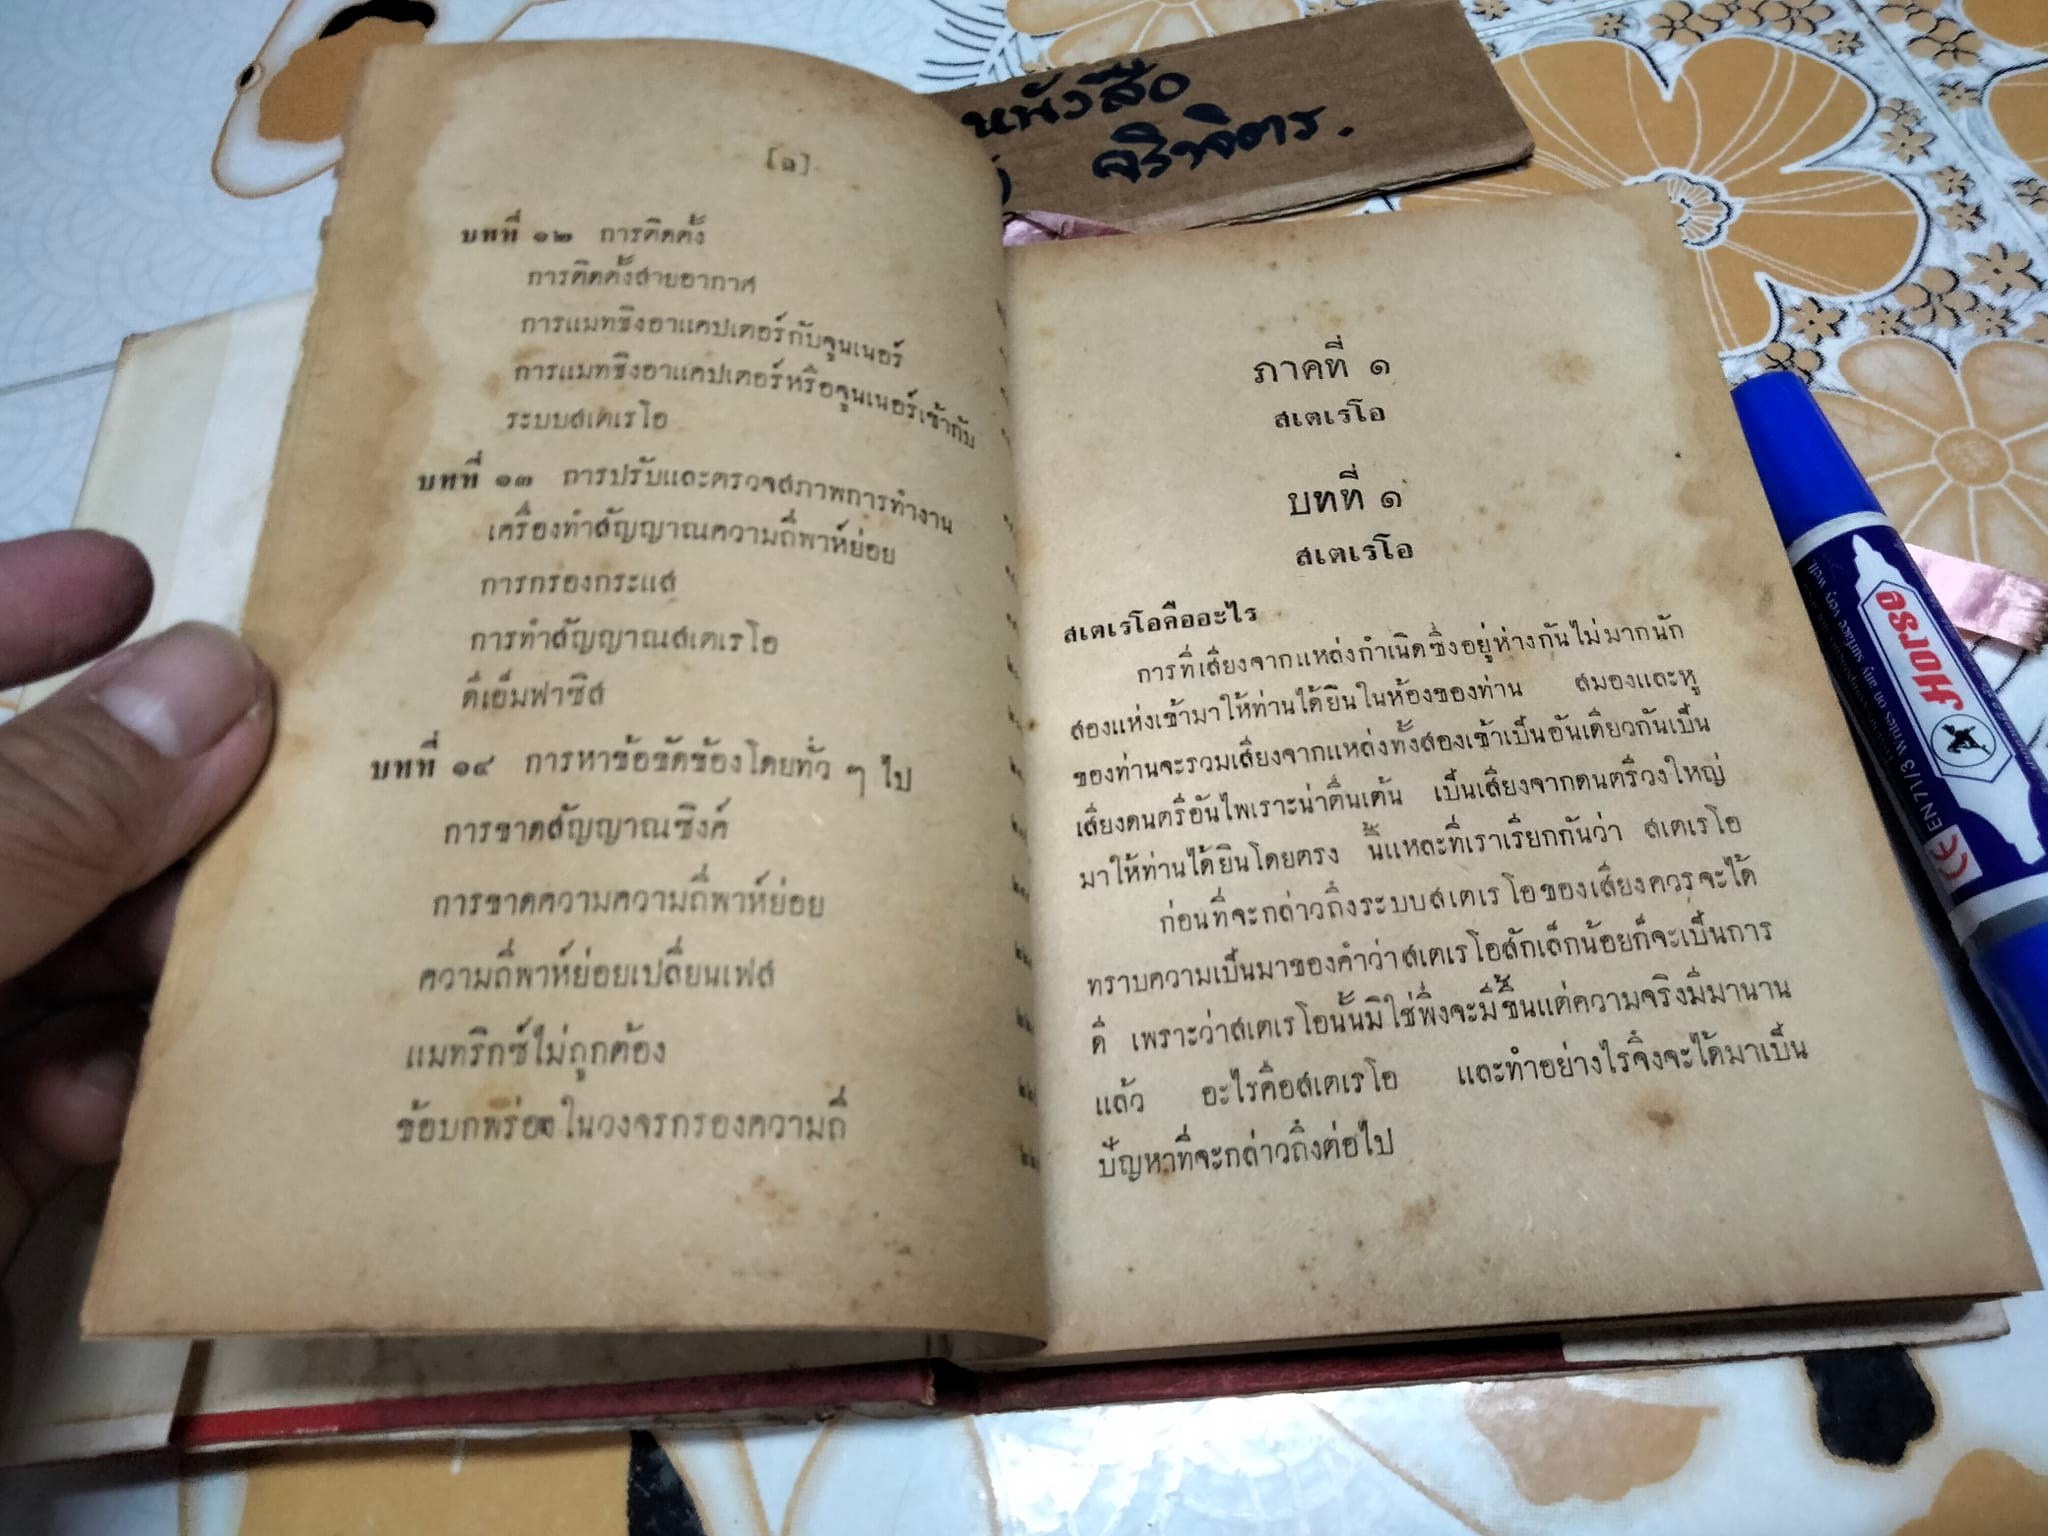 หนังสือ
จริจิตร.
บทที่ ๑๒ การติดตั้ง
การติดตั้งสายอากาศ
การแมทชิงอาแดปเตอร์กับจูนเนอร์
การแมทชิงอาแดปเตอร์หรือจูนเนอร์เข้ากับ
ระบบสเตเรโอ
บทที่ ๑๓ การปรับและตรวจสภาพการทำงาน
เครื่องทำสัญญาณความถี่พาห์ย่อย
การกรองกระแส
การทำสัญญาณสเตเรโอ
ดีเอ็มฟาซิส
บทที่ ๑๔ การหาข้อขัดข้องโดยทั่ว ๆ ไป
การขาดสัญญาณซิงค์
การขาดความความถี่พาห์ย่อย
ความถี่พาห์ย่อยเปลี่ยนเฟส
แมทริกซ์ไม่ถูกต้อง
ข้อบกพร่องในวงจรกรองความถี่
ภาคที่ ๑
สเตเรโอ
บทที่ ๑
สเตเรโอ
สเตเรโอคืออะไร
การที่เสียงจากแหล่งกำเนิดซึ่งอยู่ห่างกันไม่มากนัก
สองแห่งเข้ามาให้ท่านได้ยินในห้องของท่าน สมองและหู
ของท่านจะรวมเสียงจากแหล่งทั้งสองเข้าเป็นอันเดียวกันเป็น
เสียงดนตรีอันไพเราะน่าตื่นเต้น เป็นเสียงจากดนตรีวงใหญ่
มาให้ท่านได้ยินโดยตรง นี้แหละที่เราเรียกกันว่า สเตเรโอ
ก่อนที่จะกล่าวถึงระบบสเตเรโอของเสียงควรจะได้
ทราบความเป็นมาของคำว่าสเตเรโอสักเล็กน้อยก็จะเป็นการ
ดี เพราะว่าสเตเรโอนั้นมิใช่พึ่งจะมีขึ้นแต่ความจริงมีมานาน
แล้ว อะไรคือสเตเรโอ และทำอย่างไรจึงจะได้มาเป็น
ปัญหาที่จะกล่าวถึงต่อไป
Horse
CE EN 71/3 Writes on any surface very well.